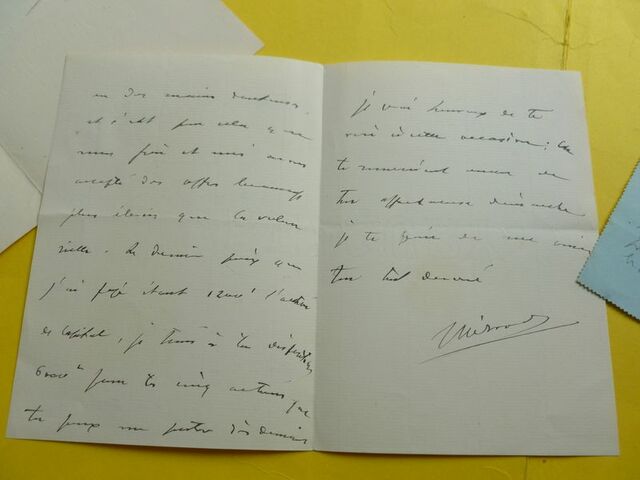 en des mains
et c'est pour cela que
mon frère et moi avons
accepté des offres beaucoup
plus élevées que la valeur
réelle. Le dernier prix que
j'ai payé étant 1200 f l'action
de capital, je tiens à ta disposition
6000 f pour tes cinq actions que
tu peux me porter dès demain
je serai heureux de te
voir à cette occasion; en
te remerciant encore de
ton affectueuse démarche
je te prie de me croire
ton tout dévoué